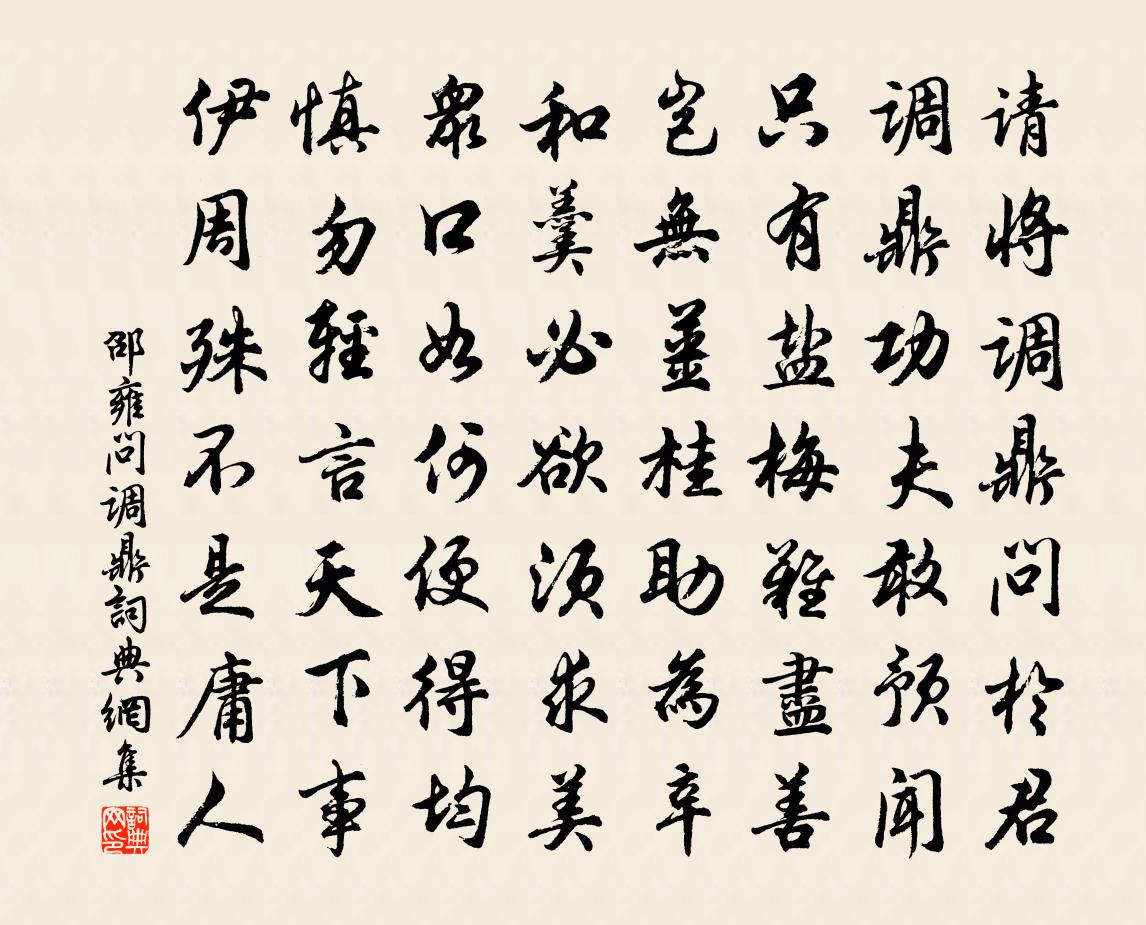 请将调鼎问於君
调鼎功夫敢预闻
只有盐梅难盡善
岂無薑桂助為辛
和羹必欲须求美
眾口如何便得均
慎勿輕言天下事
伊周殊不是庸人
邵雍问调鼎詞典網集
詞典网印